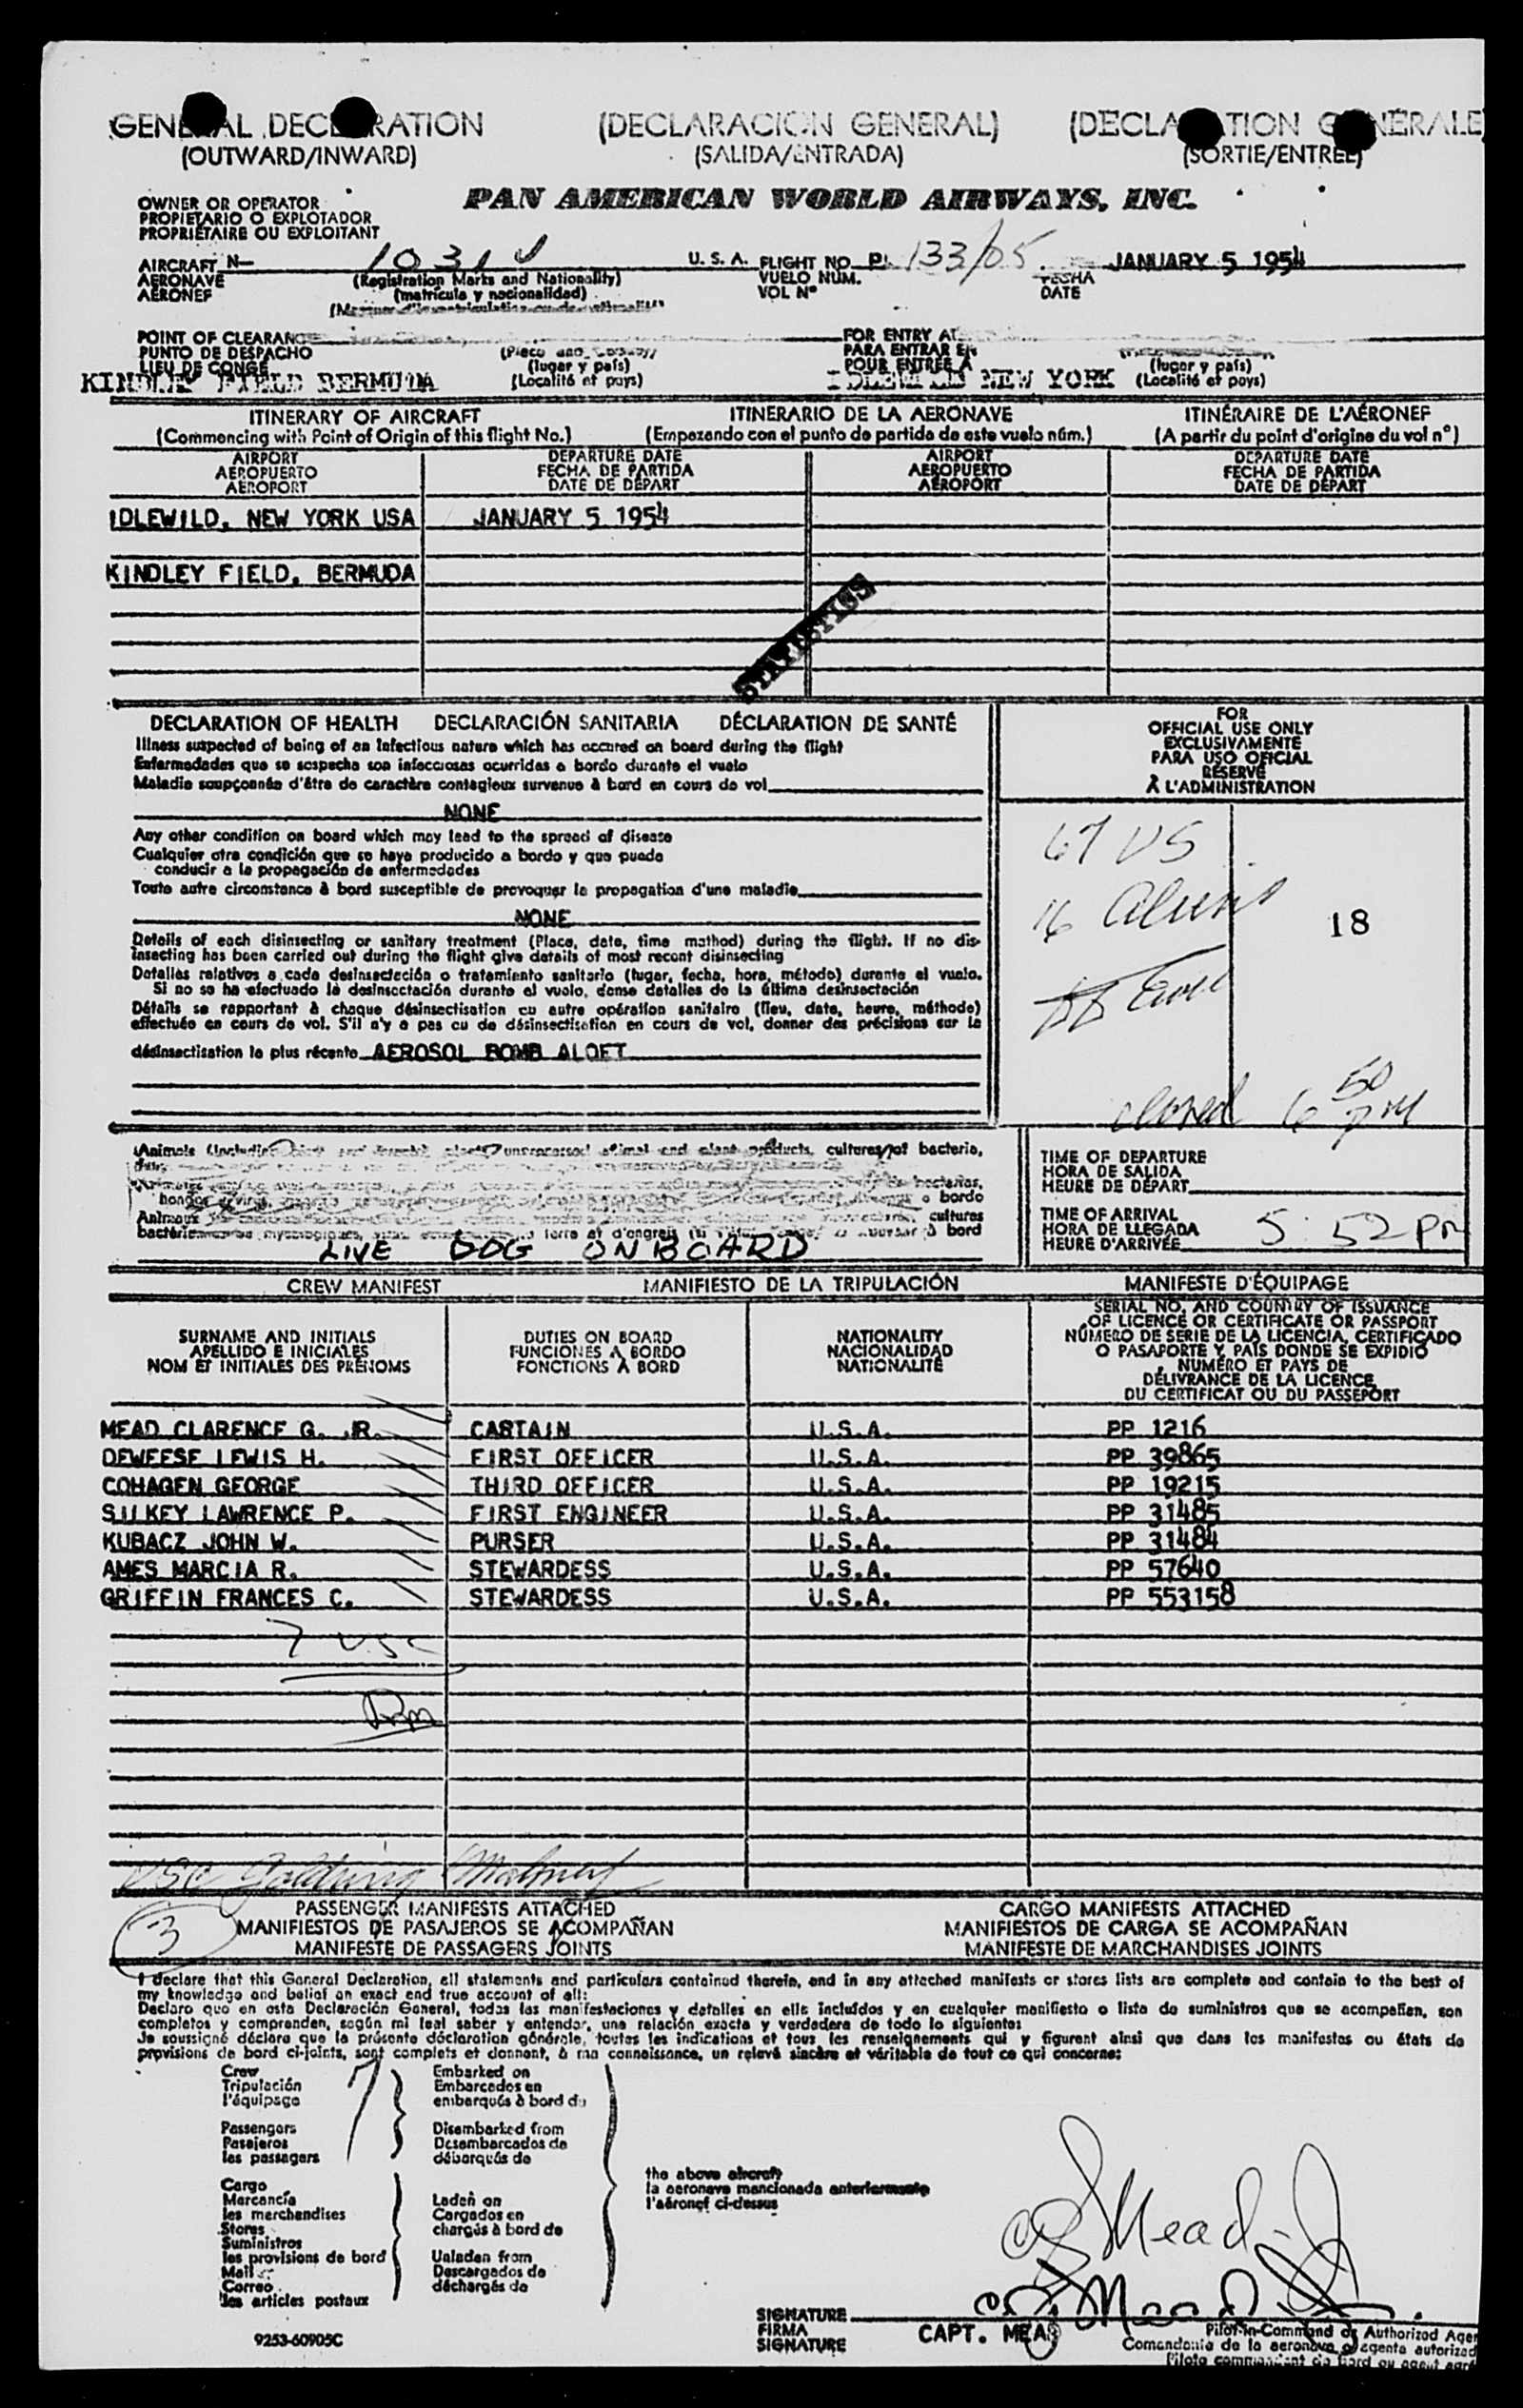 GENERAL DECLARATION (DECLARACION GENERAL) (DÉCLARATION GÉNÉRALE)
(OUTWARD/INWARD) (SALIDA/ENTRADA) (SORTIE/ENTRÉE)
OWNER OR OPERATOR
PROPIETARIO O EXPLOTADOR
PROPRIÉTAIRE OU EXPLOITANT
PAN AMERICAN WORLD AIRWAYS, INC.
AIRCRAFT N— 1031V U. S. A. FLIGHT NO. P. 133/05 JANUARY 5 1954
AERONAVE (Registration Marks and Nationality) VUELO NUM. FECHA
AÉRONEF (matrícula y nacionalidad) VOL N° DATE
POINT OF CLEARANCE FOR ENTRY AT
PUNTO DE DESPACHO (Place and Country) PARA ENTRAR EN
LIEU DE CONGÉ (lugar y país) POUR ENTRÉE A (lugar y país)
KINDLEY FIELD BERMUDA (Localité et pays) IDLEWILD NEW YORK (Localité et pays)
ITINERARY OF AIRCRAFT ITINERARIO DE LA AERONAVE ITINÉRAIRE DE L'AÉRONEF
(Commencing with Point of Origin of this flight No.) (Empezando con el punto de partida de este vuelo núm.) (A partir du point d'origine du vol n°)
AIRPORT DEPARTURE DATE AIRPORT DEPARTURE DATE
AEROPUERTO FECHA DE PARTIDA AEROPUERTO FECHA DE PARTIDA
AÉROPORT DATE DE DÉPART AÉROPORT DATE DE DÉPART
IDLEWILD, NEW YORK USA JANUARY 5 1954
KINDLEY FIELD, BERMUDA
STATISTICS
DECLARATION OF HEALTH DECLARACIÓN SANITARIA DÉCLARATION DE SANTÉ
Illness suspected of being of an infectious nature which has occured on board during the flight
Enfermedades que se sospecha son infecciosas ocurridas a bordo durante el vuelo
Maladie soupçonnée d'être de caractère contagieux survenue à bord en cours de vol
NONE
Any other condition on board which may lead to the spread of disease
Cualquier otra condición que se haya producido a bordo y que pueda
conducir a la propagación de enfermedades
Toute autre circonstance à bord susceptible de provoquer la propagation d'une maladie
NONE
Details of each disinsecting or sanitary treatment (Place, date, time method) during the flight. If no dis-
insecting has been carried out during the flight give details of most recent disinsecting
Detalles relativos a cada desinsectación o tratamiento sanitario (lugar, fecha, hora, método) durante el vuelo.
Si no se ha efectuado la desinsectación durante el vuelo, dense detalles de la última desinsectación
Détails se rapportant à chaque désinsectisation ou autre opération sanitaire (lieu, date, heure, méthode)
effectuée en cours de vol. S'il n'y a pas eu de désinsectisation en cours de vol, donner des précisions sur la
désinsectisation la plus récente AEROSOL BOMB ALOFT
FOR
OFFICIAL USE ONLY
EXCLUSIVAMENTE
PARA USO OFICIAL
RÉSERVÉ
À L'ADMINISTRATION
67 US
16 aliens
18
closed 6 50 PM
Animals
cultures of bacteria,
bacterias,
hongos a bordo
Animaux cultures
à bord
LIVE DOG ON BOARD
TIME OF DEPARTURE
HORA DE SALIDA
HEURE DE DÉPART
TIME OF ARRIVAL
HORA DE LLEGADA
HEURE D'ARRIVÉE 5:52 pm
CREW MANIFEST MANIFIESTO DE LA TRIPULACIÓN MANIFESTE D'ÉQUIPAGE
SURNAME AND INITIALS
APELLIDO E INICIALES
NOM ET INITIALES DES PRÉNOMS
DUTIES ON BOARD
FUNCIONES A BORDO
FONCTIONS À BORD
NATIONALITY
NACIONALIDAD
NATIONALITÉ
SERIAL NO. AND COUNTRY OF ISSUANCE
OF LICENCE OR CERTIFICATE OR PASSPORT
NÚMERO DE SERIE DE LA LICENCIA, CERTIFICADO
O PASAPORTE Y PAÍS DONDE SE EXPIDIÓ
NUMÉRO ET PAYS DE
DÉLIVRANCE DE LA LICENCE,
DU CERTIFICAT OU DU PASSEPORT
MEAD CLARENCE G. JR. CAPTAIN U.S.A. PP 1216
DEWEESE LEWIS H. FIRST OFFICER U.S.A. PP 39865
COHAGEN GEORGE THIRD OFFICER U.S.A. PP 19215
SILKEY LAWRENCE P. FIRST ENGINEER U.S.A. PP 31485
KUBACZ JOHN W. PURSER U.S.A. PP 31484
AMES MARCIA R. STEWARDESS U.S.A. PP 57640
GRIFFIN FRANCES C. STEWARDESS U.S.A. PP 553158
7 USC
3
PASSENGER MANIFESTS ATTACHED CARGO MANIFESTS ATTACHED
MANIFIESTOS DE PASAJEROS SE ACOMPAÑAN MANIFIESTOS DE CARGA SE ACOMPAÑAN
MANIFESTE DE PASSAGERS JOINTS MANIFESTE DE MARCHANDISES JOINTS
I declare that this General Declaration, all statements and particulars contained therein, and in any attached manifests or stores lists are complete and contain to the best of
my knowledge and belief an exact and true account of all:
Declaro que en esta Declaración General, todas las manifestaciones y detalles en ella incluídos y en cualquier manifiesto o lista de suministros que se acompañan, son
completos y comprenden, según mi leal saber y entender, una relación exacta y verdadera de todo lo siguiente:
Je soussigné déclare que la présente déclaration générale, toutes les indications et tous les renseignements qui y figurent ainsi que dans les manifestes ou états de
provisions de bord ci-joints, sont complets et donnent, à ma connaissance, un relevé sincère et véritable de tout ce qui concerne:
Crew 7 Embarked on
Tripulación Embarcados en
l'équipage embarqués à bord du
Passengers Disembarked from
Pasajeros Desembarcados de
les passagers débarqués de
Cargo
Mercancía Laden on
les merchandises Cargados en
Stores chargés à bord de
Suministros
les provisions de bord Unladen from
Mail Descargados de
Correo déchargés de
les articles postaux
the above aircraft
la aeronave mencionada anteriormente
l'aéronef ci-dessus
CG Mead Jr
CG Mead Jr.
SIGNATURE
FIRMA
SIGNATURE
CAPT. MEAD
Pilot-in-Command or Authorized Agen
Comandante de la aeronave o agente autorizad
Pilote commandant de bord ou agent agré
9253-60905C